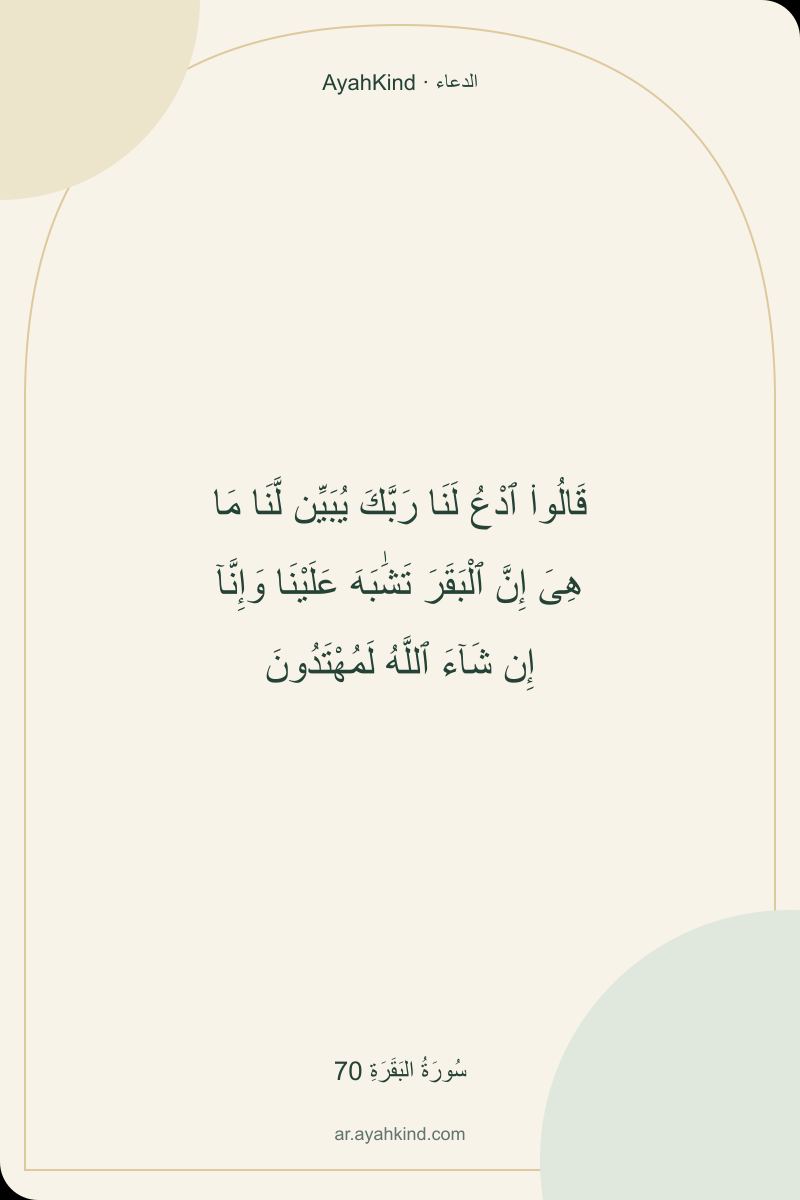 AyahKind · الدعاء
قَالُوا۟ ٱدْعُ لَنَا رَبَّكَ يُبَيِّن لَّنَا مَا
هِىَ إِنَّ ٱلْبَقَرَ تَشَٰبَهَ عَلَيْنَا وَإِنَّآ
إِن شَآءَ ٱللَّهُ لَمُهْتَدُونَ
سُورَةُ البَقَرَةِ 70
ar.ayahkind.com